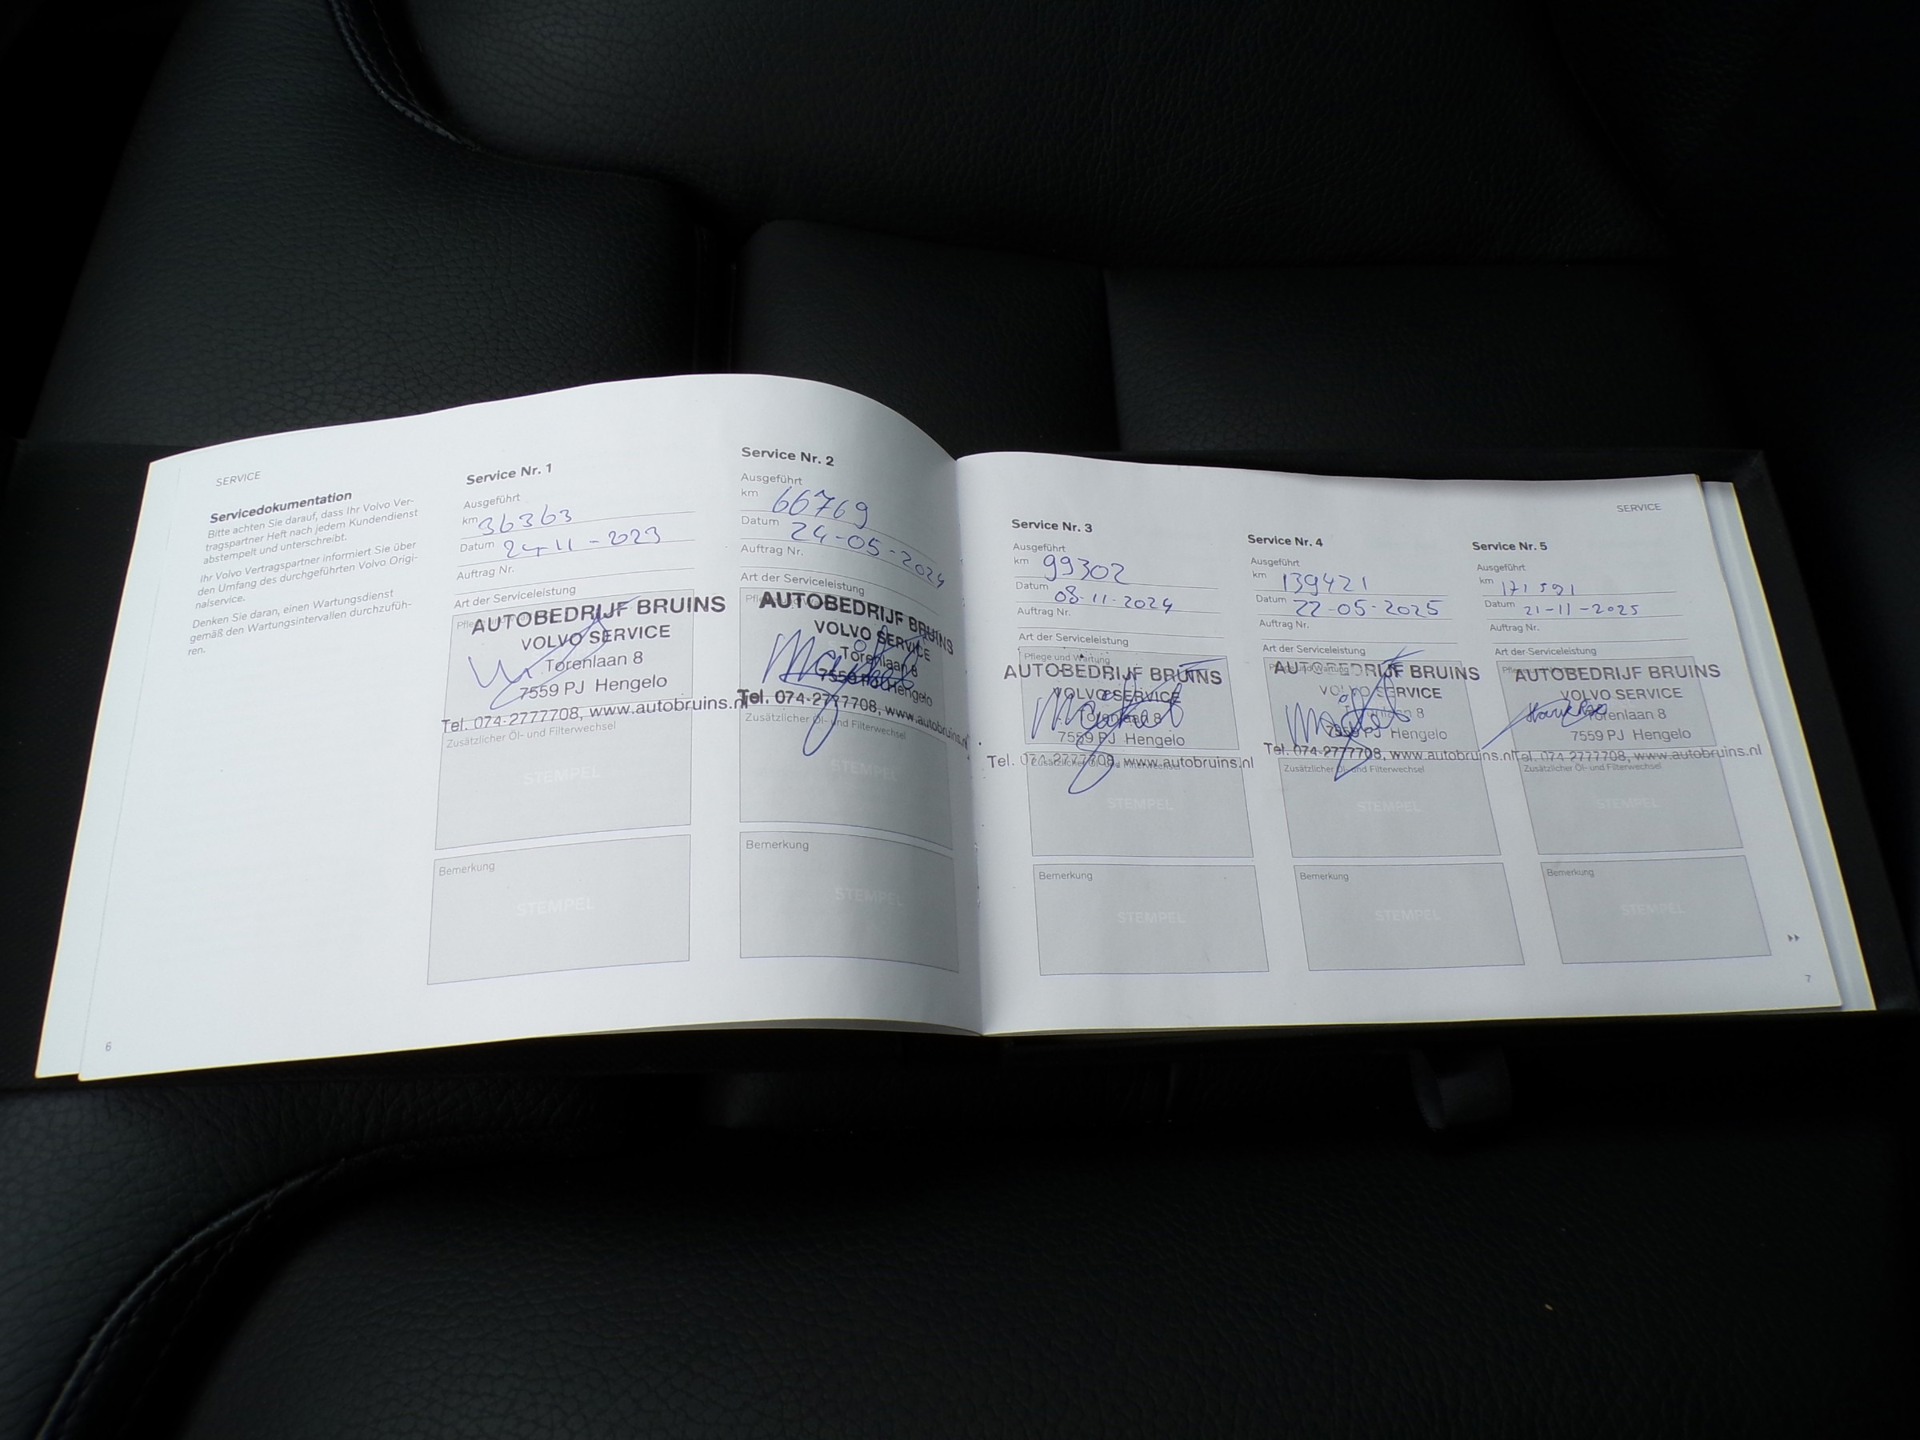 SERVICE
Servicedokumentation
Bitte achten Sie darauf, dass Ihr Volvo Ver-
tragspartner Heft nach jedem Kundendienst
abstempelt und unterschreibt.
Ihr Volvo Vertragspartner informiert Sie über
den Umfang des durchgeführten Volvo Origi-
nalservice.
Denken Sie daran, einen Wartungsdienst
gemäß den Wartungsintervallen durchzufüh-
ren.
6
Service Nr. 1
Ausgeführt
km 36363
Datum 24-11-2023
Auftrag Nr.
Art der Serviceleistung
AUTOBEDRIJF BRUINS
VOLVO SERVICE
Torenlaan 8
7559 PJ Hengelo
Tel. 074-2777708, www.autobruins.nl
Zusätzlicher Öl- und Filterwechsel
STEMPEL
Bemerkung
STEMPEL
Service Nr. 2
Ausgeführt
km 66769
Datum 24-05-2024
Auftrag Nr.
Art der Serviceleistung
AUTOBEDRIJF BRUINS
VOLVO SERVICE
Torenlaan 8
7559 PJ Hengelo
Tel. 074-2777708, www.autobruins.nl
Zusätzlicher Öl- und Filterwechsel
STEMPEL
Bemerkung
STEMPEL
SERVICE
Service Nr. 3
Ausgeführt
km 99302
Datum 08-11-2024
Auftrag Nr.
Art der Serviceleistung
Pflege und Wartung
AUTOBEDRIJF BRUINS
VOLVO SERVICE
Torenlaan 8
7559 PJ Hengelo
Tel. 074-2777708, www.autobruins.nl
Zusätzlicher Öl- und Filterwechsel
STEMPEL
Bemerkung
STEMPEL
Service Nr. 4
Ausgeführt
km 139421
Datum 22-05-2025
Auftrag Nr.
Art der Serviceleistung
Pflege und Wartung
AUTOBEDRIJF BRUINS
VOLVO SERVICE
Torenlaan 8
7559 PJ Hengelo
Tel. 074-2777708, www.autobruins.nl
Zusätzlicher Öl- und Filterwechsel
STEMPEL
Bemerkung
STEMPEL
Service Nr. 5
Ausgeführt
km 171591
Datum 21-11-2025
Auftrag Nr.
Art der Serviceleistung
AUTOBEDRIJF BRUINS
VOLVO SERVICE
Torenlaan 8
7559 PJ Hengelo
Tel. 074-2777708, www.autobruins.nl
Zusätzlicher Öl- und Filterwechsel
STEMPEL
Bemerkung
STEMPEL
7